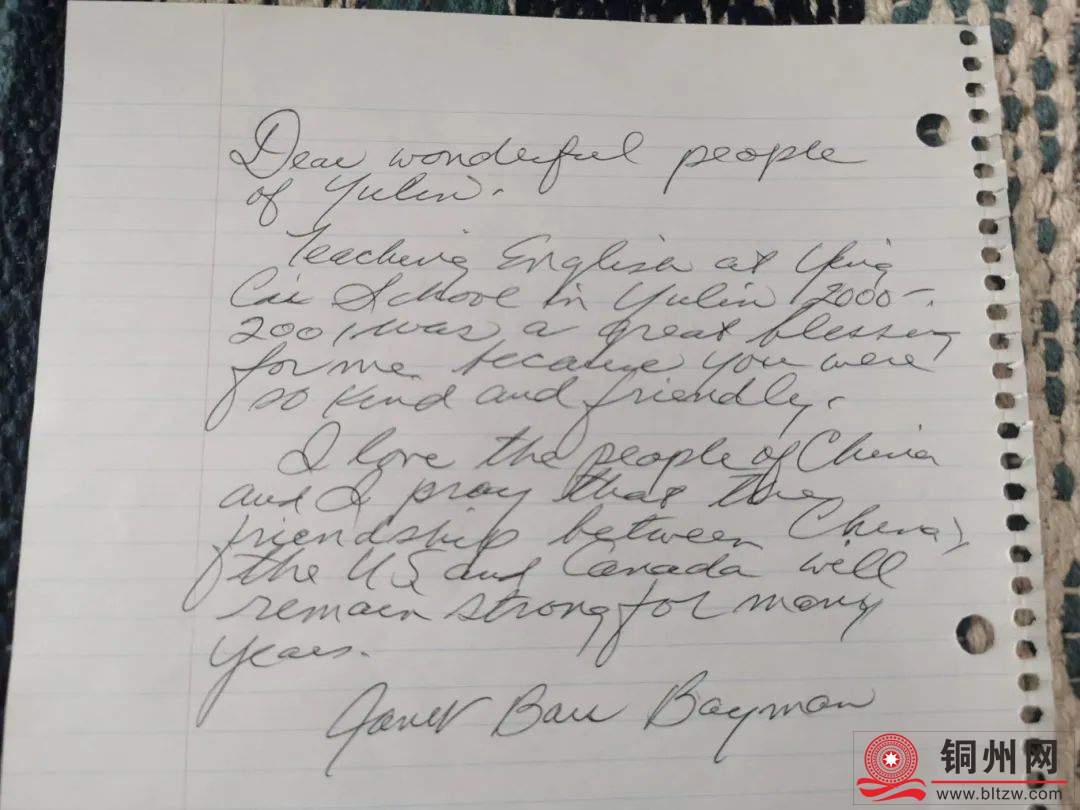 Dear wonderful people
of Yulin.
Teaching English at Ying
Cai School in Yulin 2000-
2001 was a great blessing
for me because you were
so kind and friendly.
I love the people of China
and I pray that the
friendship between China,
the US and Canada will
remain strong for many
years.
Janet Barr Bayman
铜州网
www.bltzw.com